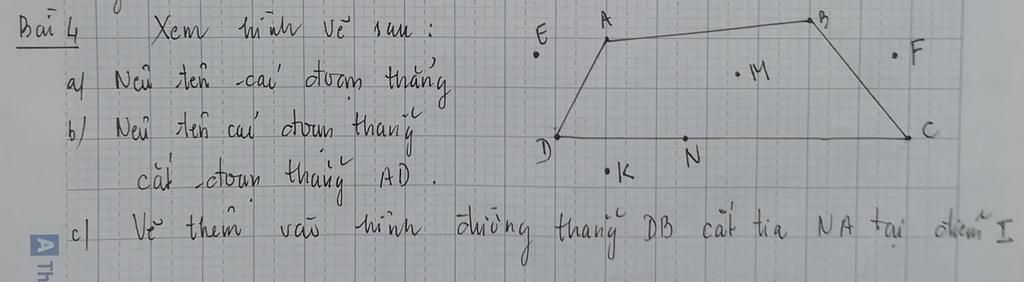 Bài 4 Xem hình vẽ sau :
a) Nêu tên các đoạn thẳng
b) Nêu tên các đoạn thẳng
cắt đoạn thẳng AD .
c) Vẽ thêm vào hình đường thẳng DB cắt tia NA tại điểm I
E
A
B
F
M
D
N
C
K
A Th